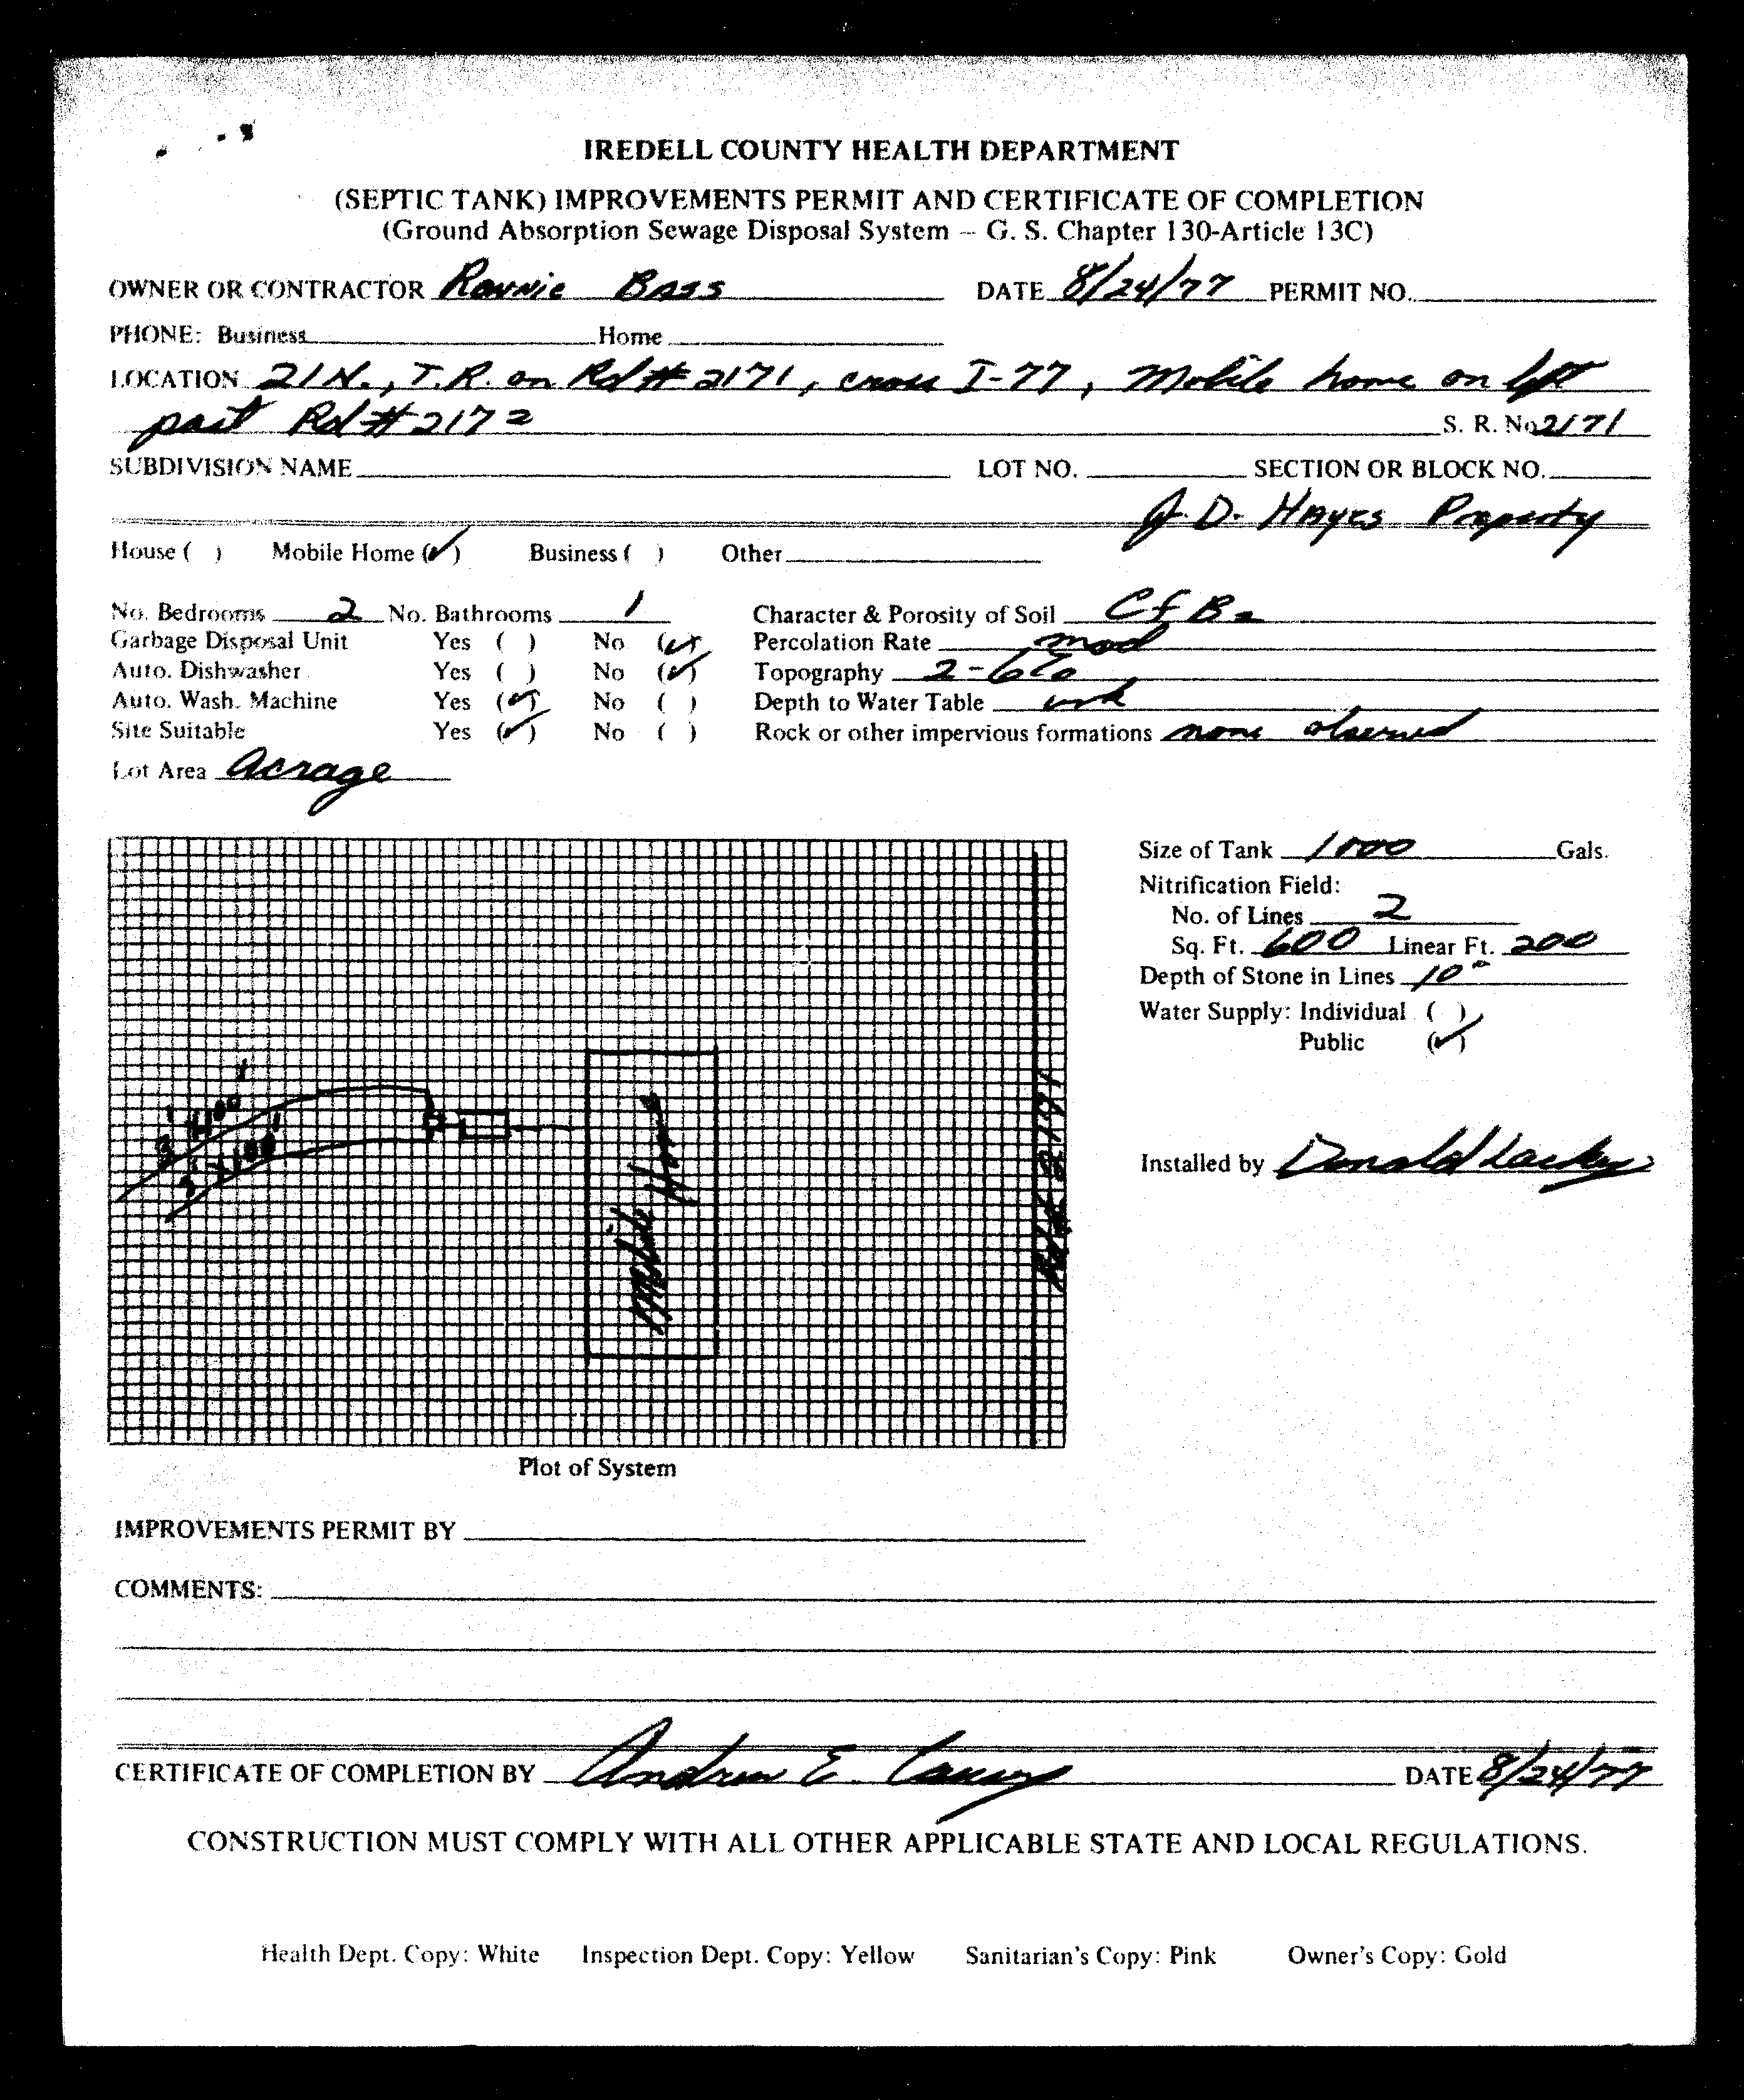 IREDELL COUNTY HEALTH DEPARTMENT
(SEPTIC TANK) IMPROVEMENTS PERMIT AND CERTIFICATE OF COMPLETION
(Ground Absorption Sewage Disposal System – G. S. Chapter 130-Article 13C)
OWNER OR CONTRACTOR Ronnie Bass DATE 8/24/77 PERMIT NO.
PHONE: Business Home
LOCATION 21 N., T.R. on Rd # 2171, cross I-77, Mobile home on left
past Rd # 2172 S. R. No 2171
SUBDIVISION NAME LOT NO. SECTION OR BLOCK NO.
J. D. Hayes Property
House ( ) Mobile Home (✓) Business ( ) Other
No. Bedrooms 2 No. Bathrooms 1 Character & Porosity of Soil Cf B2
Garbage Disposal Unit Yes ( ) No (✓) Percolation Rate mod
Auto. Dishwasher Yes ( ) No (✓) Topography 2-6%
Auto. Wash. Machine Yes (✓) No ( ) Depth to Water Table unk
Site Suitable Yes (✓) No ( ) Rock or other impervious formations none observed
Lot Area Acrage
Size of Tank 1000 Gals.
Nitrification Field:
No. of Lines 2
Sq. Ft. 600 Linear Ft. 200
Depth of Stone in Lines 10"
Water Supply: Individual ( )
Public (✓)
3' x 100'
3' x 100'
Mobile Home
Rd # 2171
Installed by Donald Lackey
Plot of System
IMPROVEMENTS PERMIT BY
COMMENTS:
CERTIFICATE OF COMPLETION BY Andrew E. DATE 8/24/77
CONSTRUCTION MUST COMPLY WITH ALL OTHER APPLICABLE STATE AND LOCAL REGULATIONS.
Health Dept. Copy: White Inspection Dept. Copy: Yellow Sanitarian's Copy: Pink Owner's Copy: Gold